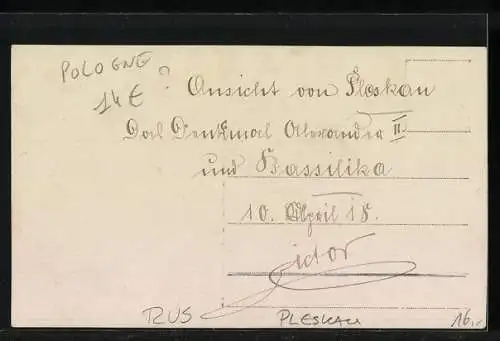 POLOGNE ?
14 €
Ansicht von Pleskau
Das Denkmal Alexander II.
und Bassilika
10. April 18.
Victor
RUS
PLESKAU
16,-